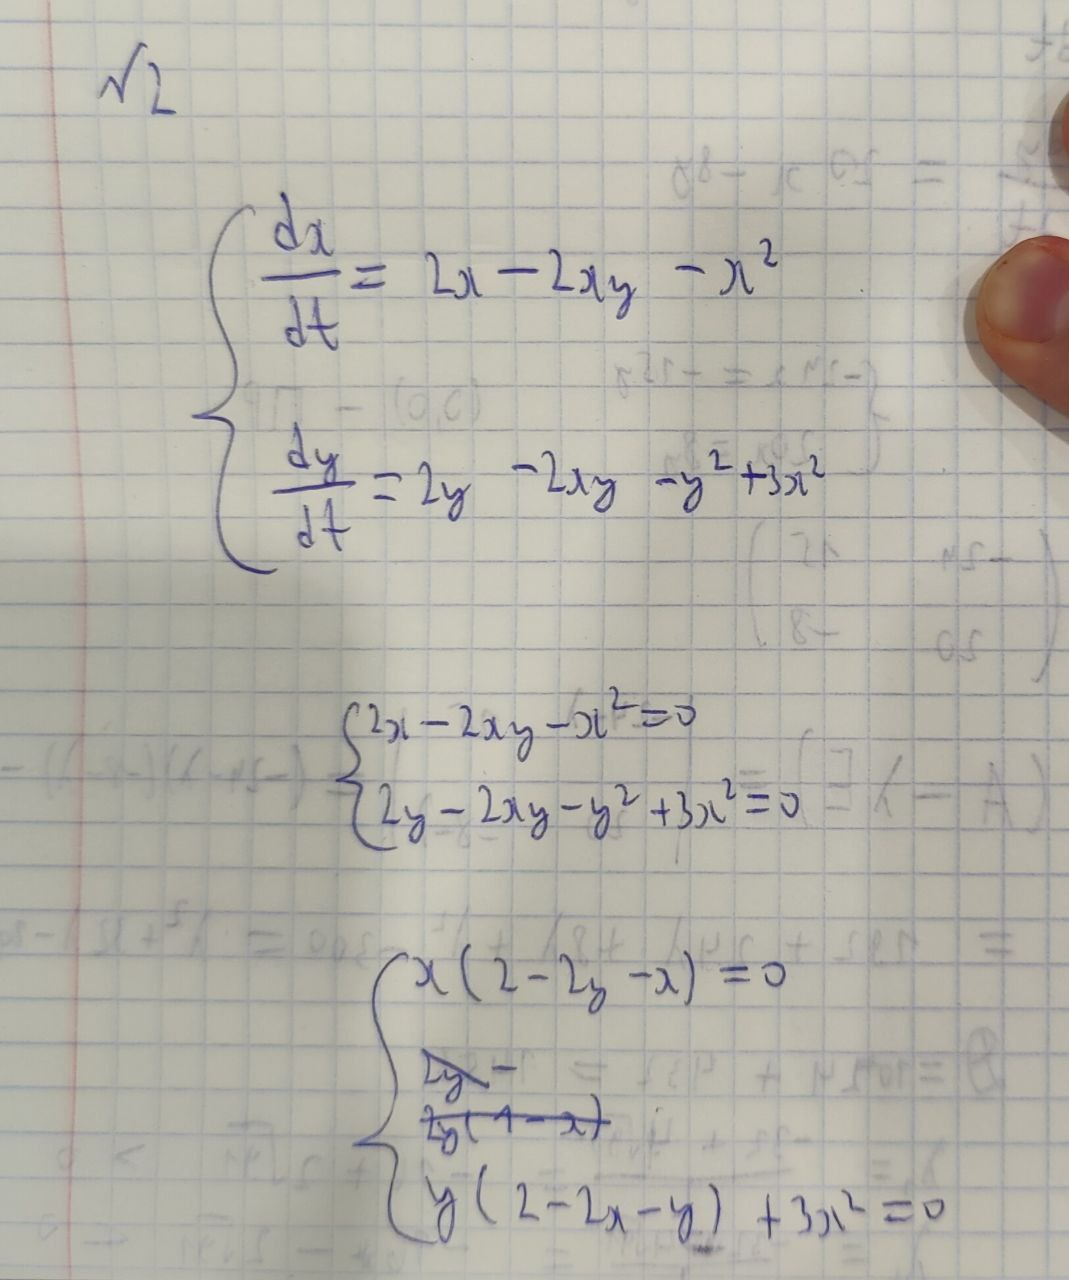 √2
dx/dt = 2x − 2xy − x²
dy/dt = 2y − 2xy − y² + 3x²
2x − 2xy − x² = 0
2y − 2xy − y² + 3x² = 0
x(2 − 2y − x) = 0
2y −
2y(1 − x)
y(2 − 2x − y) + 3x² = 0